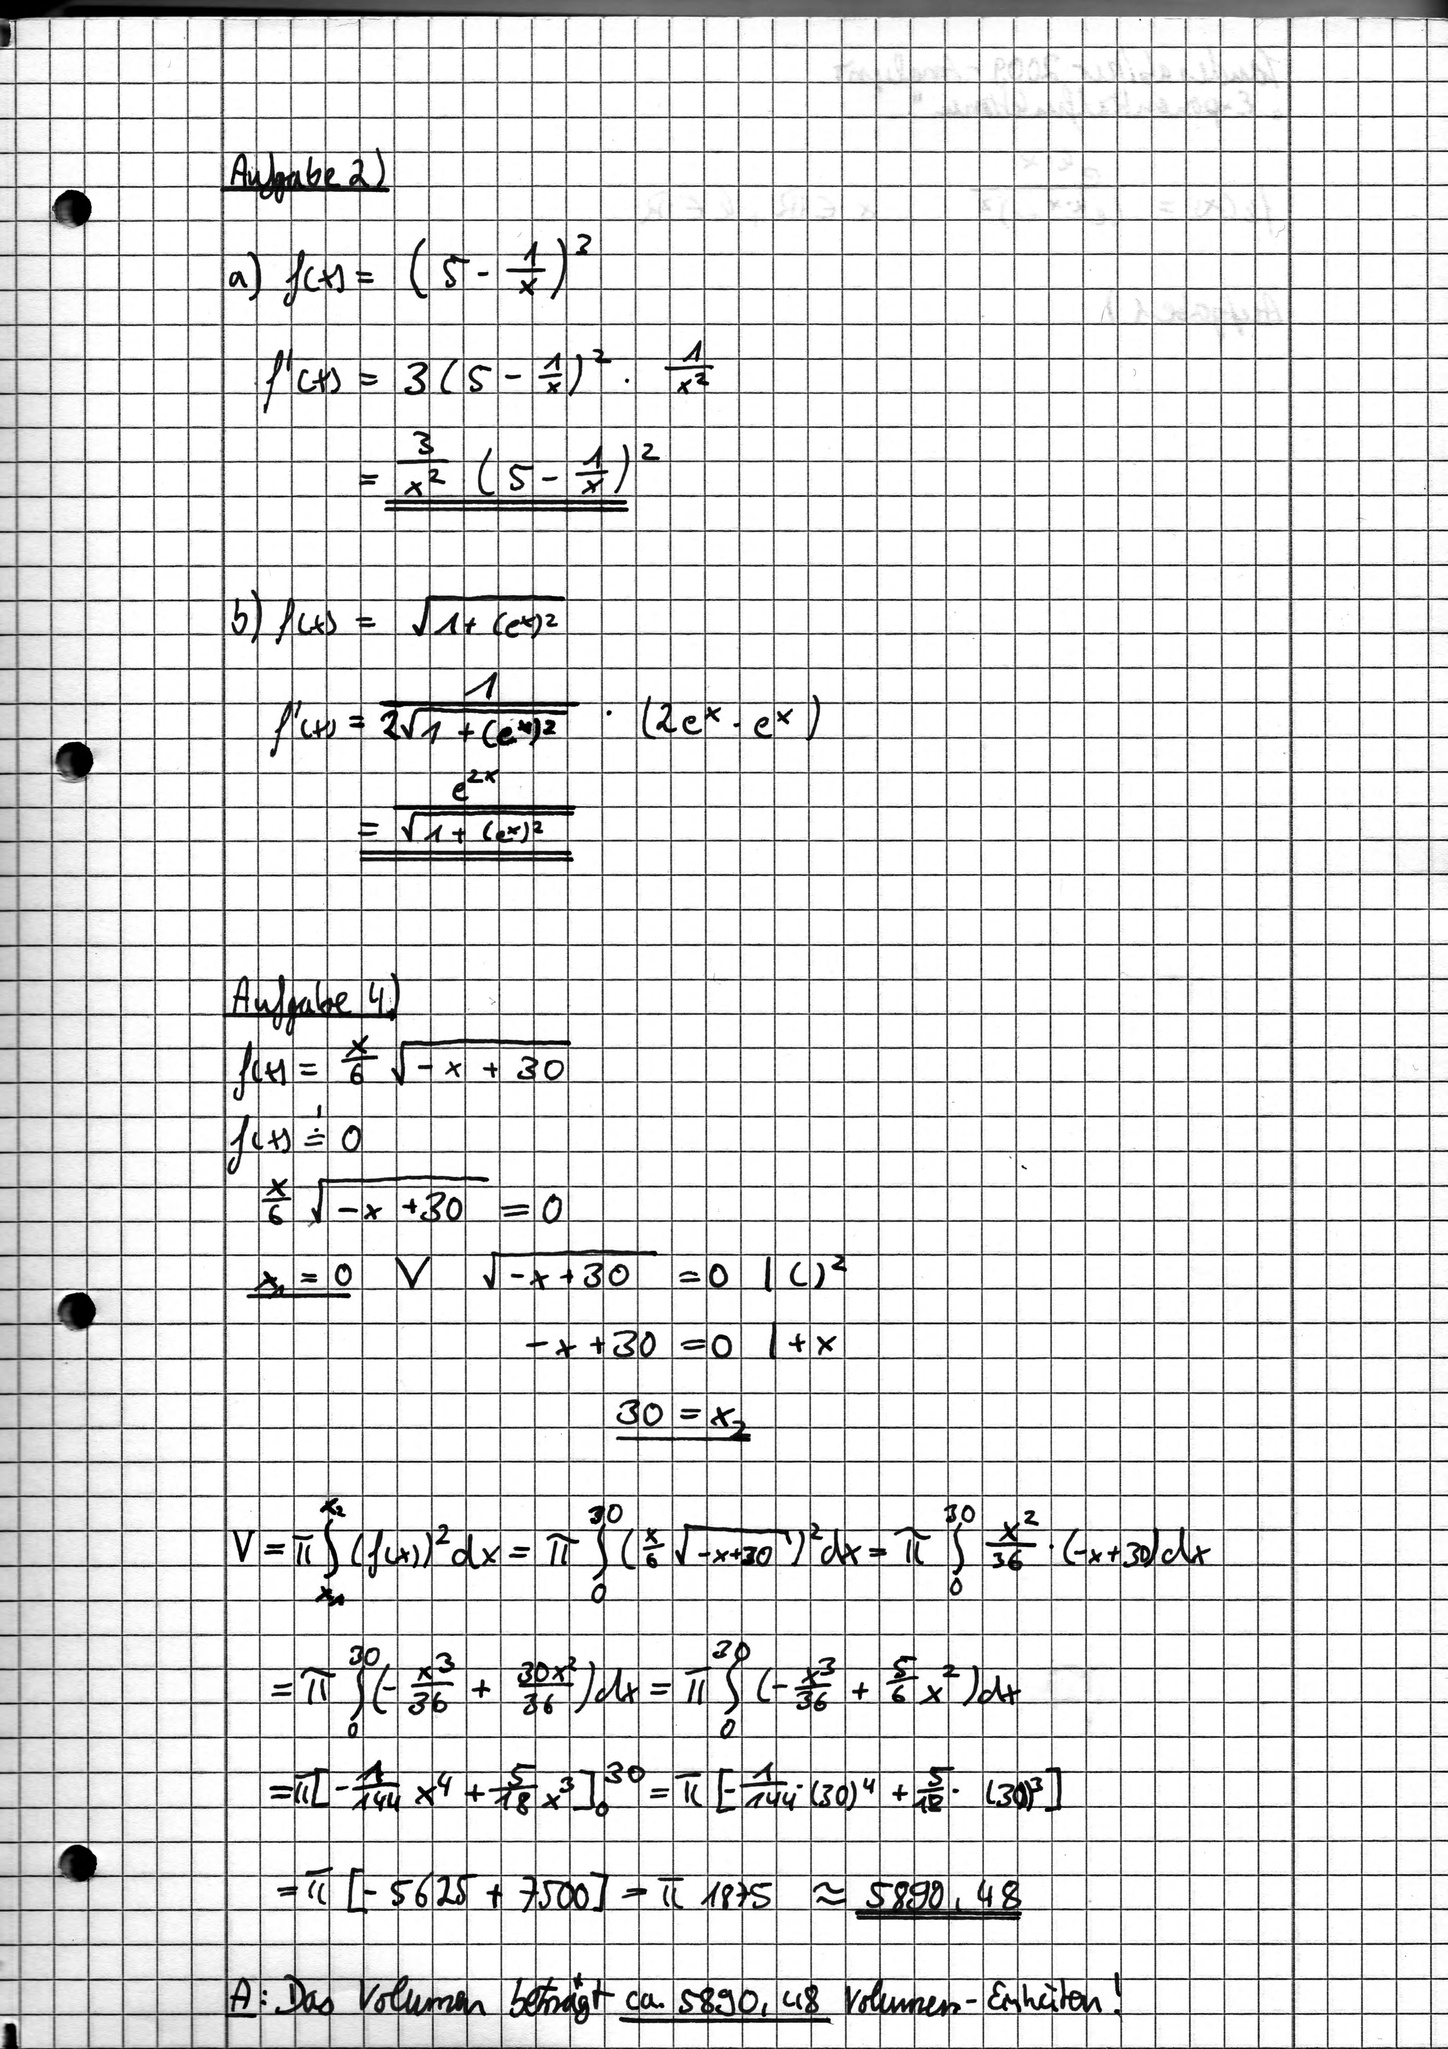 Aufgabe 2)
a) f(x) = (5 - 1/x)³
f'(x) = 3(5 - 1/x)² · 1/x²
= 3/x² (5 - 1/x)²
b) f(x) = √(1 + (eˣ)²)
f'(x) = 1/(2√(1 + (eˣ)²)) · (2eˣ · eˣ)
= e²ˣ/√(1 + (eˣ)²)
Aufgabe 4)
f(x) = x/6 √(-x + 30)
f(x) ≐ 0
x/6 √(-x + 30) = 0
x₁ = 0 ∨ √(-x + 30) = 0 | ( )²
-x + 30 = 0 | + x
30 = x₂
V = π ∫ₓ₁ˣ² (f(x))² dx = π ∫₀³⁰ (x/6 √(-x+30))² dx = π ∫₀³⁰ x²/36 · (-x+30) dx
= π ∫₀³⁰ (-x³/36 + 30x²/36) dx = π ∫₀³⁰ (-x³/36 + 5/6 x²) dx
= π[-1/144 x⁴ + 5/18 x³]₀³⁰ = π [-1/144 · (30)⁴ + 5/18 · (30)³]
= π [-5625 + 7500] = π 1875 ≈ 5890,48
A: Das Volumen beträgt ca. 5890,48 Volumen-Einheiten!